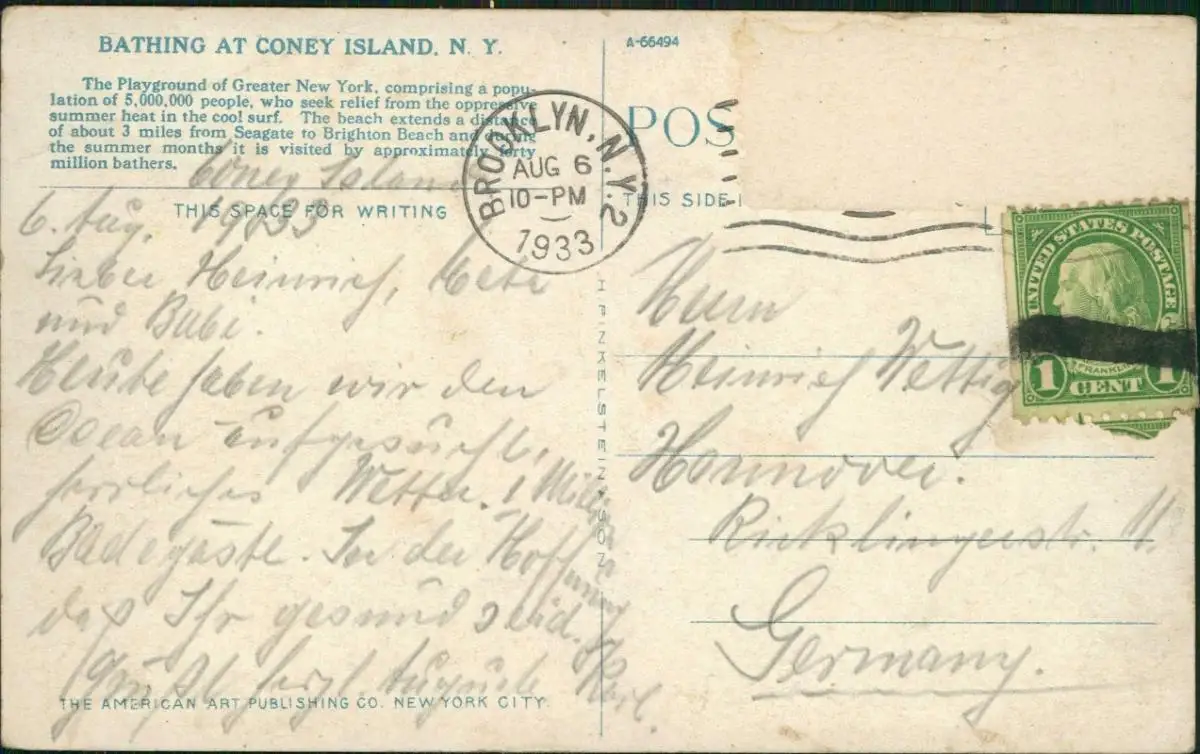 BATHING AT CONEY ISLAND, N. Y.
The Playground of Greater New York, comprising a popu-
lation of 5,000,000 people, who seek relief from the oppressive
summer heat in the cool surf. The beach extends a distance
of about 3 miles from Seagate to Brighton Beach and during
the summer months it is visited by approximately forty
million bathers.
THIS SPACE FOR WRITING
Coney Island
6. Aug. 1933
Lieber Heinrich, Meta
und Bubi.
Heute haben wir den
Ocean aufgesucht,
herrliches Wetter. 1 Million
Badegäste. In der Hoffnung
daß Ihr gesund seid.
Grüßt herzl August Karl.
THE AMERICAN ART PUBLISHING CO. NEW YORK CITY.
H. FINKELSTEIN & SON
A-66494
POS
THIS SIDE
BROOKLYN, N.Y. 2
AUG 6
10-PM
1933
UNITED STATES POSTAGE
FRANKLIN
1 CENT 1
Herrn
Heinrich Wettig
Hannover.
Ricklingerstr. 11.
Germany.